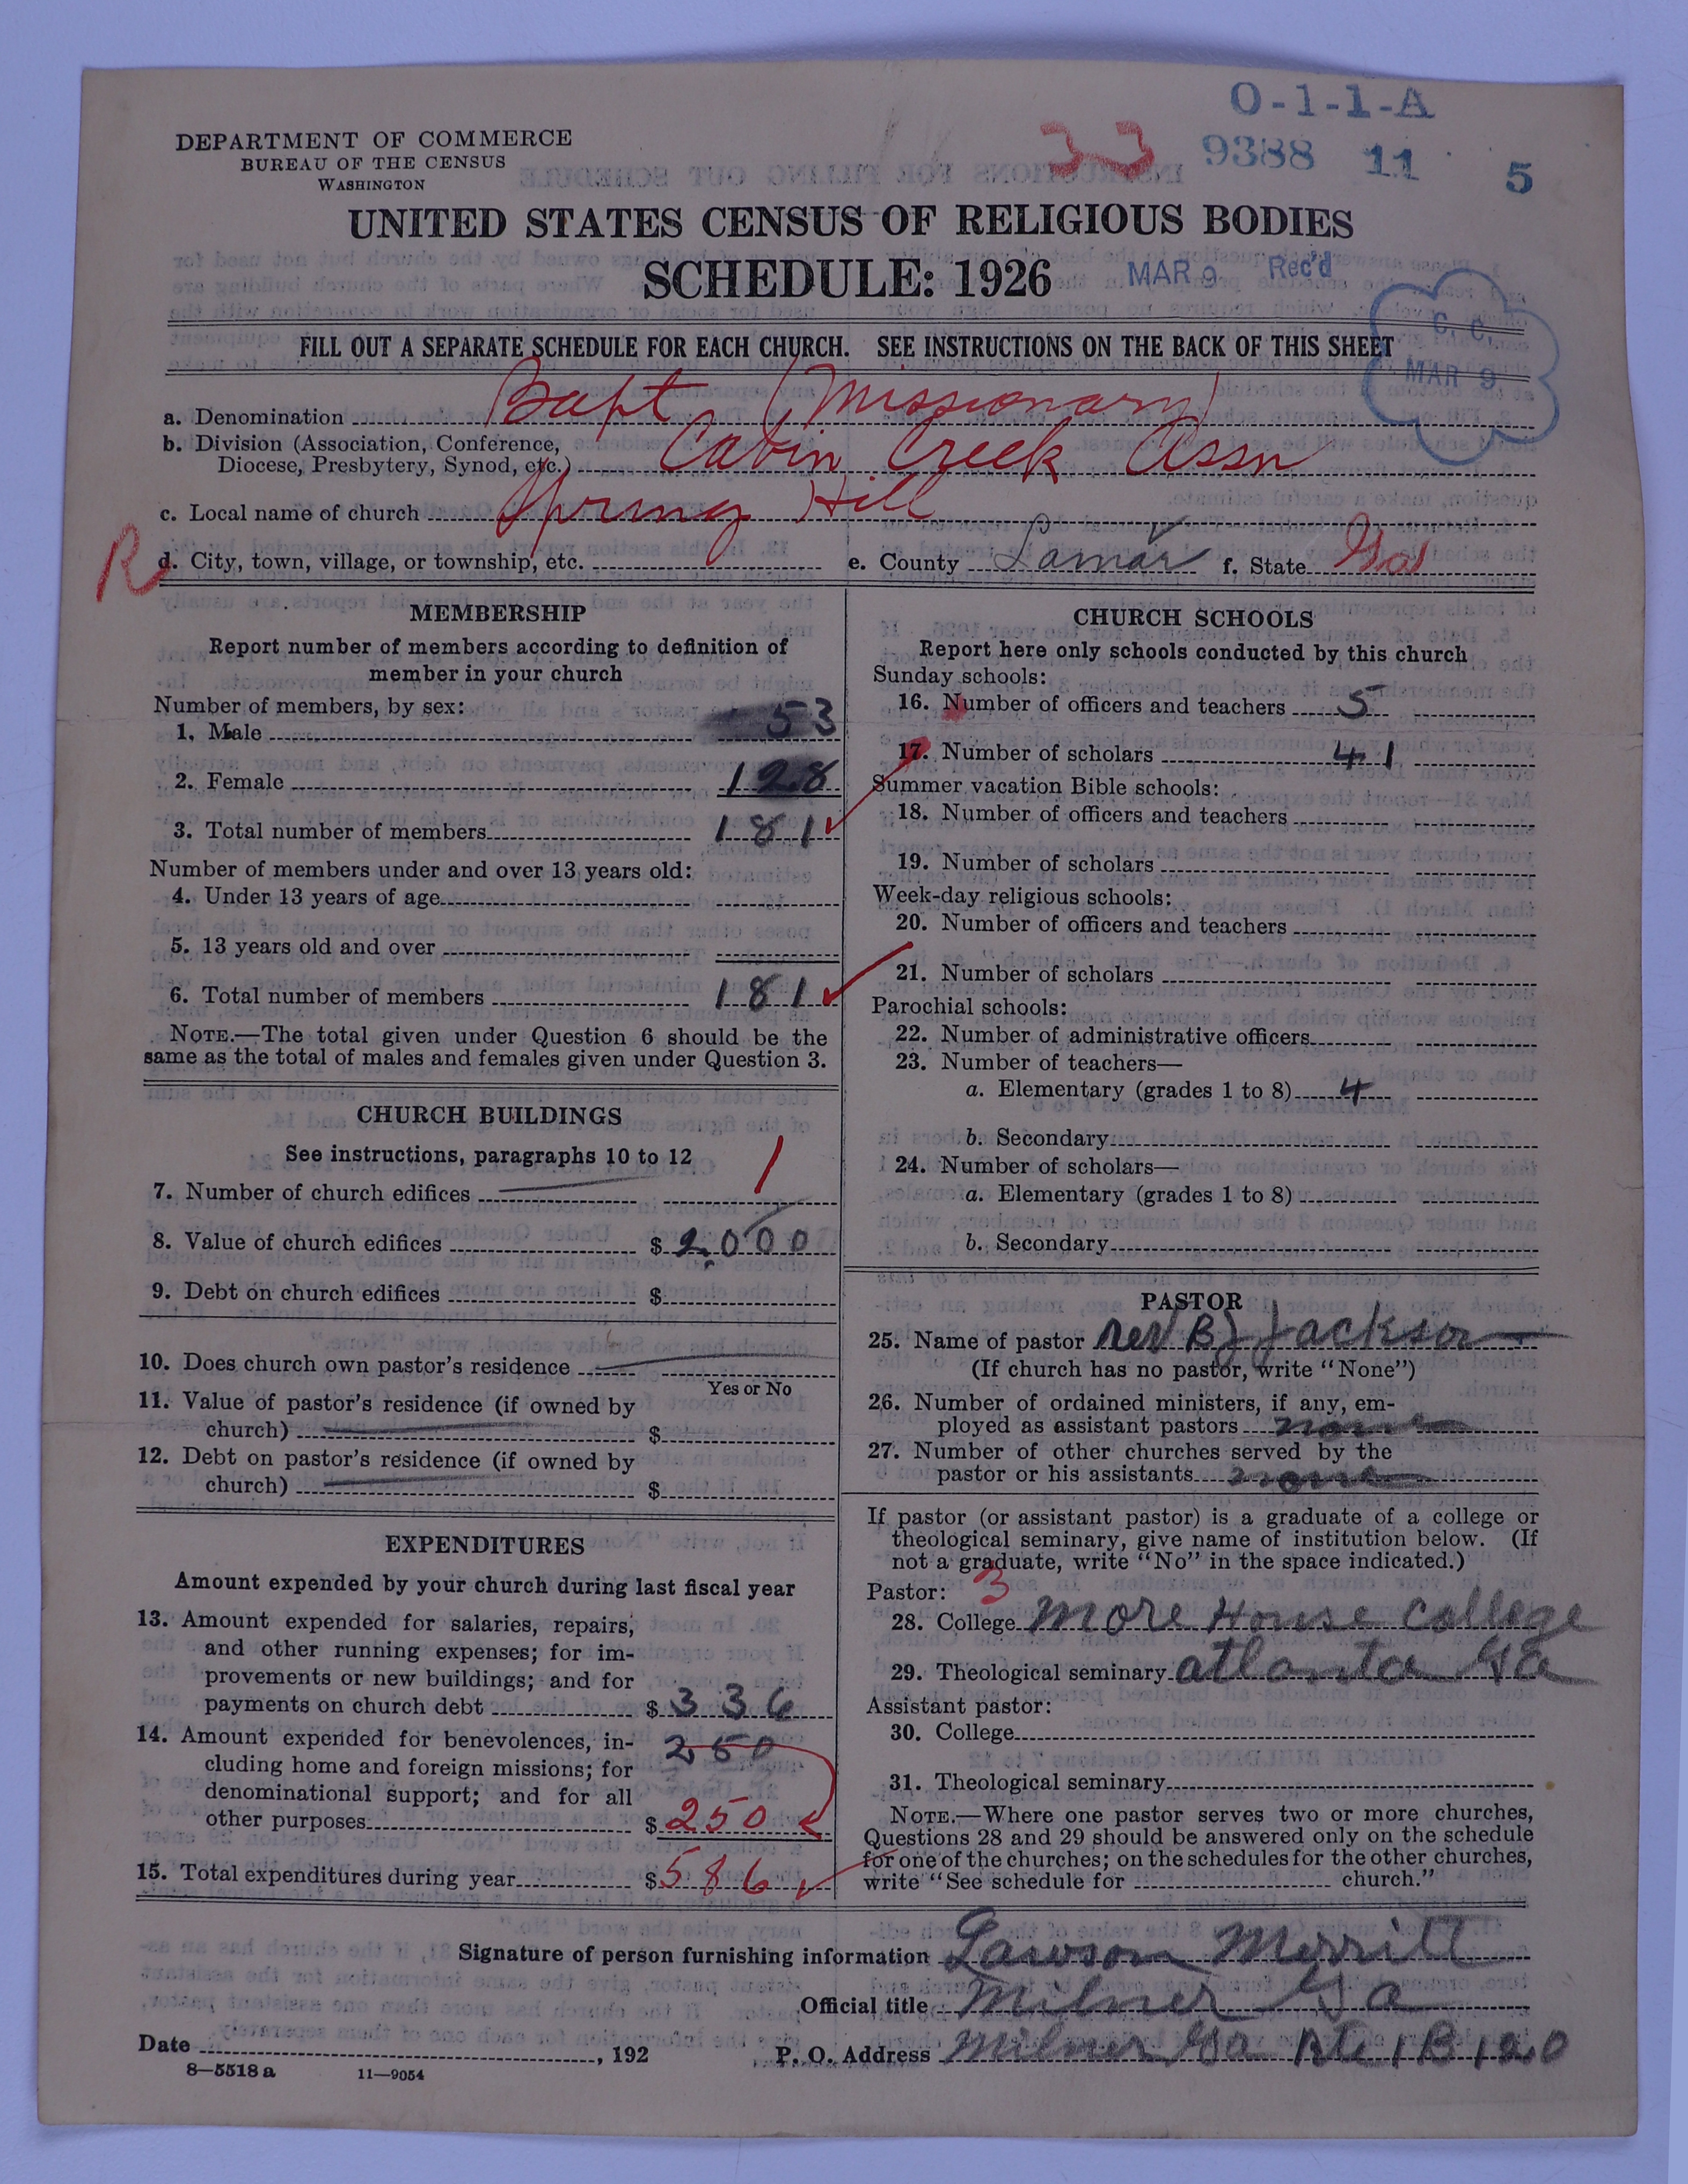 O-1-1-A
DEPARTMENT OF COMMERCE
BUREAU OF THE CENSUS
WASHINGTON
33
9388 11 5
UNITED STATES CENSUS OF RELIGIOUS BODIES
SCHEDULE: 1926
MAR 9 Rec'd
C. C.
MAR 9
FILL OUT A SEPARATE SCHEDULE FOR EACH CHURCH. SEE INSTRUCTIONS ON THE BACK OF THIS SHEET
a. Denomination Bapt (Missionary)
b. Division (Association, Conference,
Diocese, Presbytery, Synod, etc.) Cabin Creek Assn
c. Local name of church Spring Hill
R
d. City, town, village, or township, etc. e. County Lamar f. State Ga
MEMBERSHIP
Report number of members according to definition of
member in your church
Number of members, by sex:
1. Male 53
2. Female 128
3. Total number of members 181
Number of members under and over 13 years old:
4. Under 13 years of age
5. 13 years old and over
6. Total number of members 181
NOTE.—The total given under Question 6 should be the
same as the total of males and females given under Question 3.
CHURCH BUILDINGS
See instructions, paragraphs 10 to 12
7. Number of church edifices 1
8. Value of church edifices $ 2000
9. Debt on church edifices $
10. Does church own pastor's residence
Yes or No
11. Value of pastor's residence (if owned by
church) $
12. Debt on pastor's residence (if owned by
church) $
EXPENDITURES
Amount expended by your church during last fiscal year
13. Amount expended for salaries, repairs,
and other running expenses; for im-
provements or new buildings; and for
payments on church debt $ 336
14. Amount expended for benevolences, in- 250
cluding home and foreign missions; for
denominational support; and for all
other purposes $ 250
15. Total expenditures during year $ 586
CHURCH SCHOOLS
Report here only schools conducted by this church
Sunday schools:
16. Number of officers and teachers 5
17. Number of scholars 41
Summer vacation Bible schools:
18. Number of officers and teachers
19. Number of scholars
Week-day religious schools:
20. Number of officers and teachers
21. Number of scholars
Parochial schools:
22. Number of administrative officers
23. Number of teachers—
a. Elementary (grades 1 to 8) 4
b. Secondary
24. Number of scholars—
a. Elementary (grades 1 to 8)
b. Secondary
PASTOR
25. Name of pastor Rev B J Jackson
(If church has no pastor, write "None")
26. Number of ordained ministers, if any, em-
ployed as assistant pastors none
27. Number of other churches served by the
pastor or his assistants none
If pastor (or assistant pastor) is a graduate of a college or
theological seminary, give name of institution below. (If
not a graduate, write "No" in the space indicated.)
Pastor: 3
28. College More House College
29. Theological seminary atlanta Ga
Assistant pastor:
30. College
31. Theological seminary
NOTE.—Where one pastor serves two or more churches,
Questions 28 and 29 should be answered only on the schedule
for one of the churches; on the schedules for the other churches,
write "See schedule for church."
Signature of person furnishing information Lawson Merritt
Official title Milner Ga
Date , 192 P. O. Address Milner Ga Rte 1 B 120
8—5518 a 11—9054